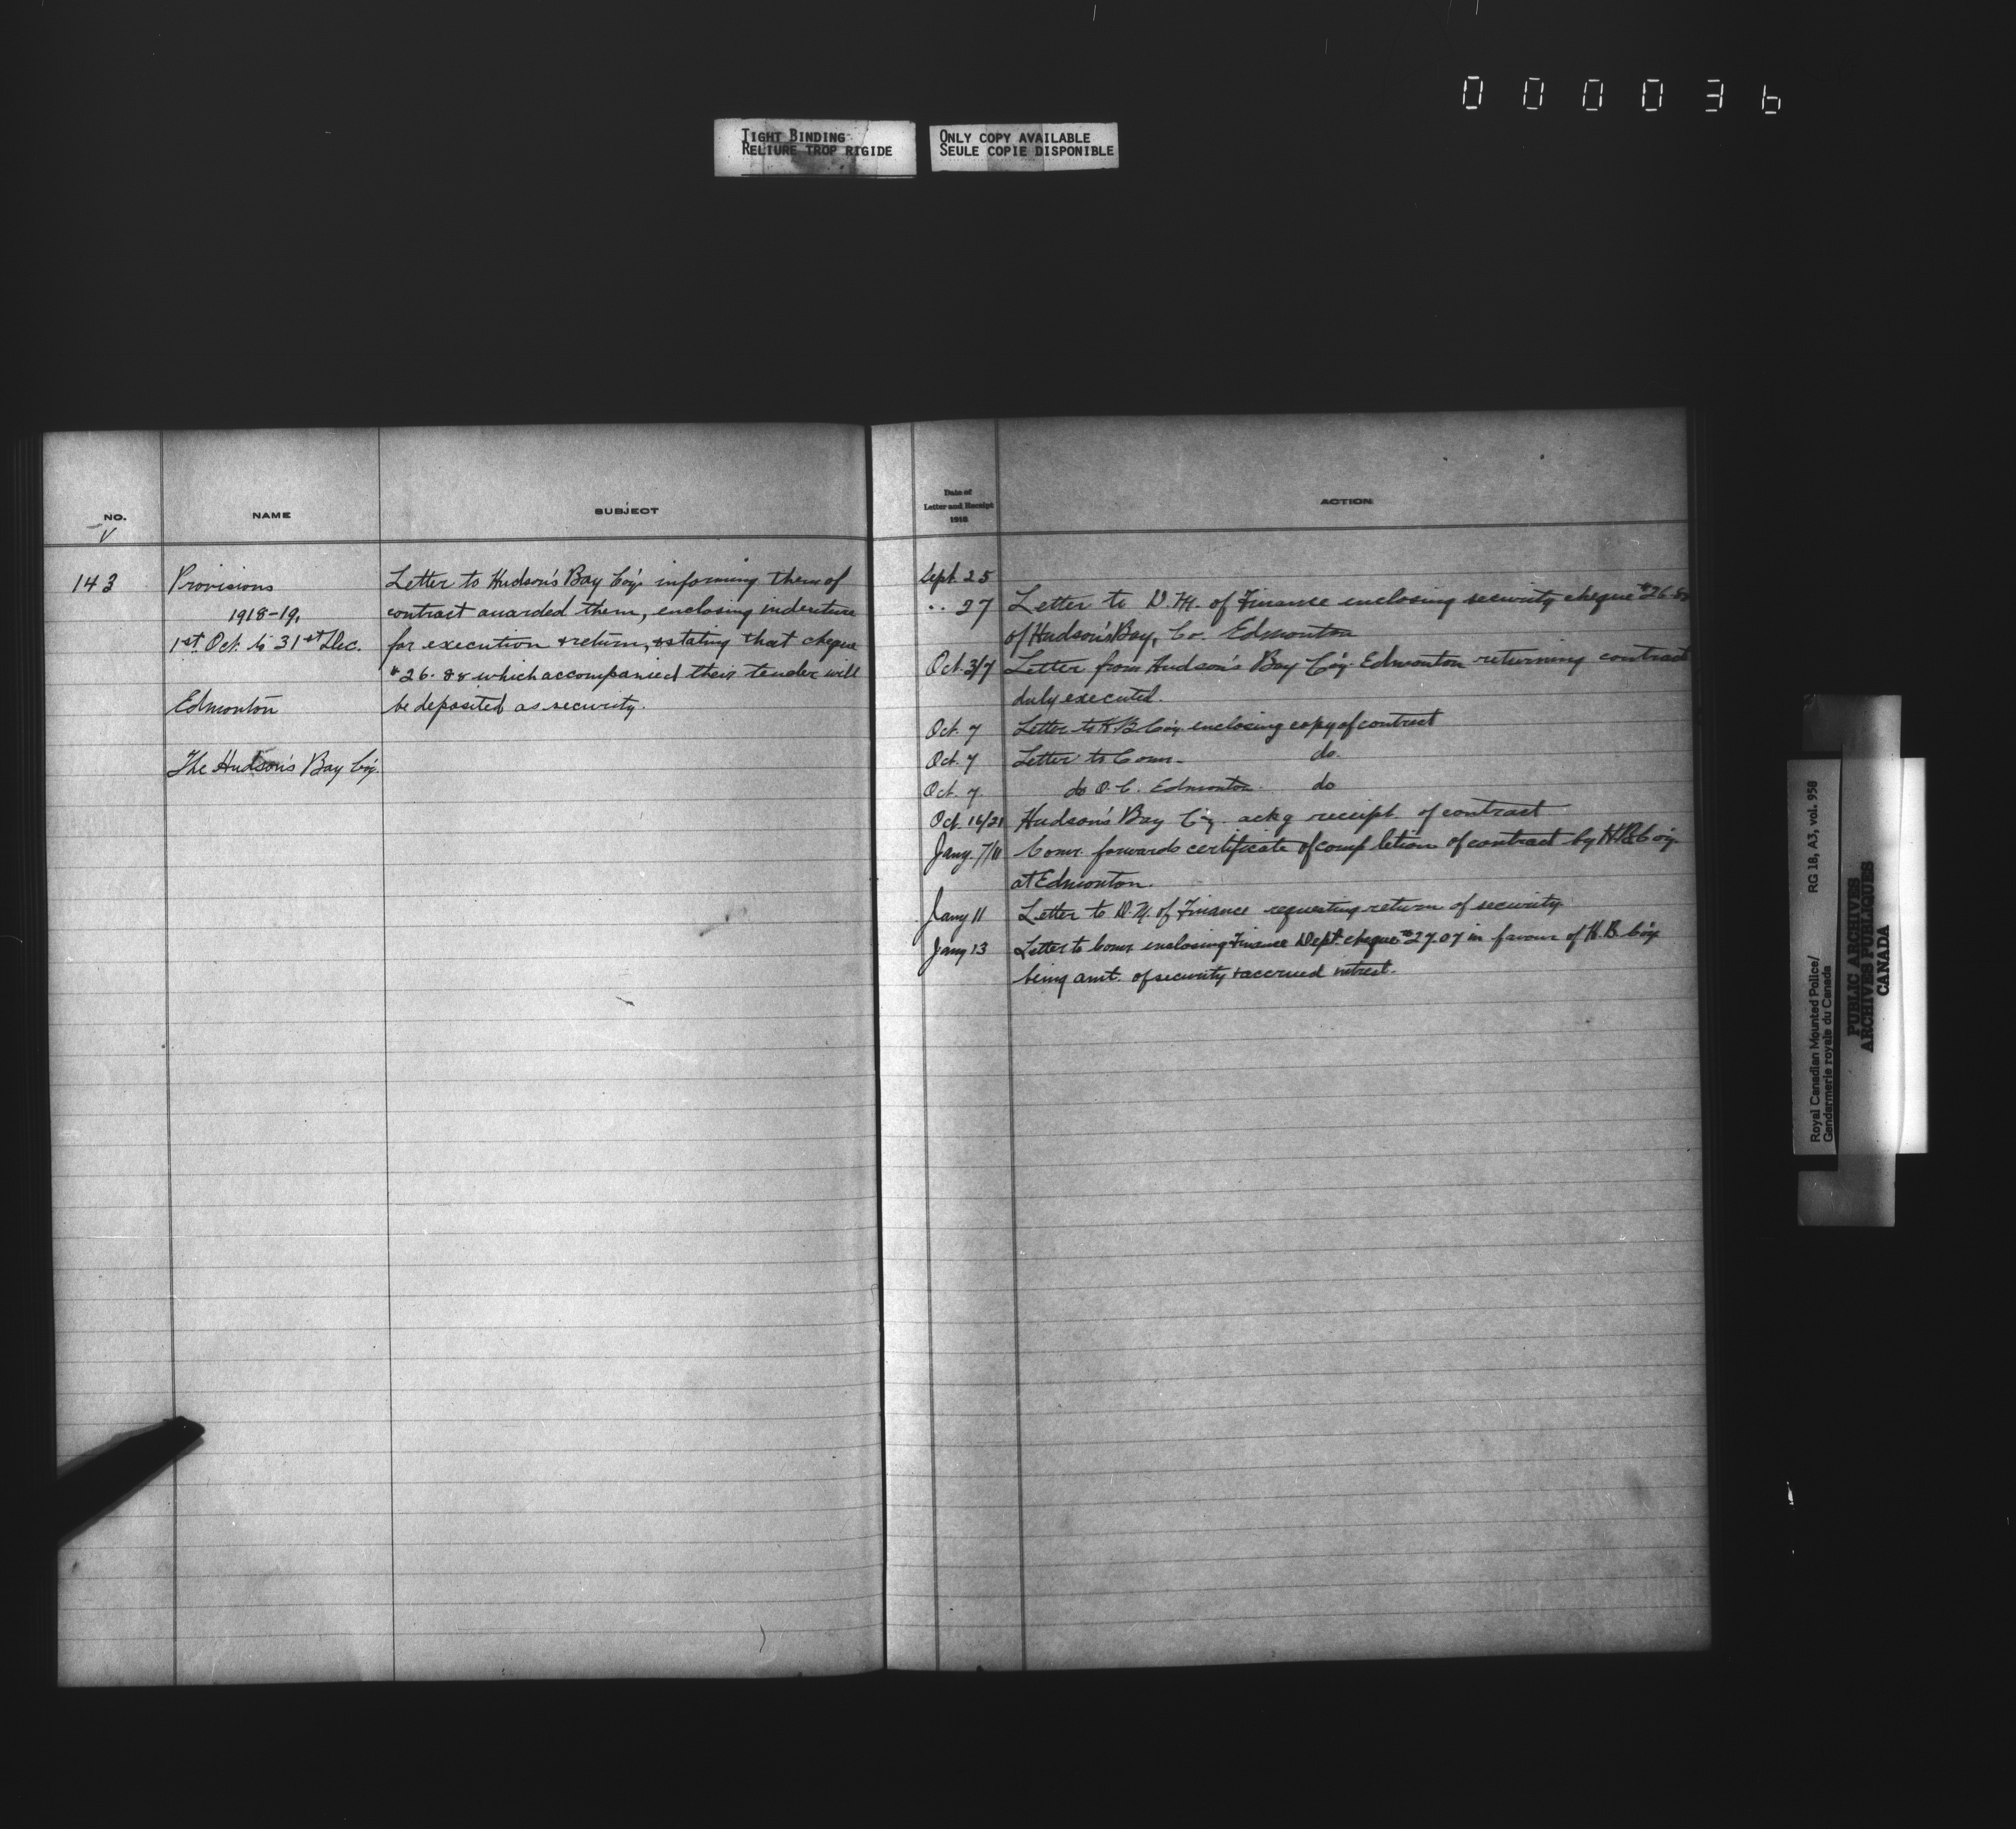 000036
TIGHT BINDING
RELIURE TROP RIGIDE
ONLY COPY AVAILABLE
SEULE COPIE DISPONIBLE
NO.
NAME
SUBJECT
143
Provisions
1918-19,
1st Oct. to 31st Dec.
Edmonton
The Hudson's Bay Co'y.
Letter to Hudson's Bay Co'y. informing them of
contract awarded them, enclosing indenture
for execution & return, & stating that cheque
$26.88 which accompanied their tender will
be deposited as security.
Date of
Letter and Receipt
1918
ACTION
Sept. 25
.. 27 Letter to D.M. of Finance enclosing security cheque $26.88
of Hudson's Bay, Co. Edmonton
Oct. 3/7 Letter from Hudson's Bay Co'y. Edmonton returning contract
duly executed.
Oct. 7 Letter to H B Co'y. enclosing copy of contract
Oct. 7 Letter to Comr. do.
Oct. 7 do O.C. Edmonton do
Oct. 16/21 Hudson's Bay Co'y. ackg receipt of contract
Jany. 7/11 Comr. forwards certificate of completion of contract by H B Co'y.
at Edmonton.
Jany 11 Letter to D.M. of Finance requesting return of security.
Jany 13 Letter to Comr enclosing Finance Dept. cheque $27.07 in favour of H.B. Co'y.
being amt. of security & accrued intrest.
Royal Canadian Mounted Police/
Gendarmerie royale du Canada
RG 18, A3, vol. 958
PUBLIC ARCHIVES
ARCHIVES PUBLIQUES
CANADA